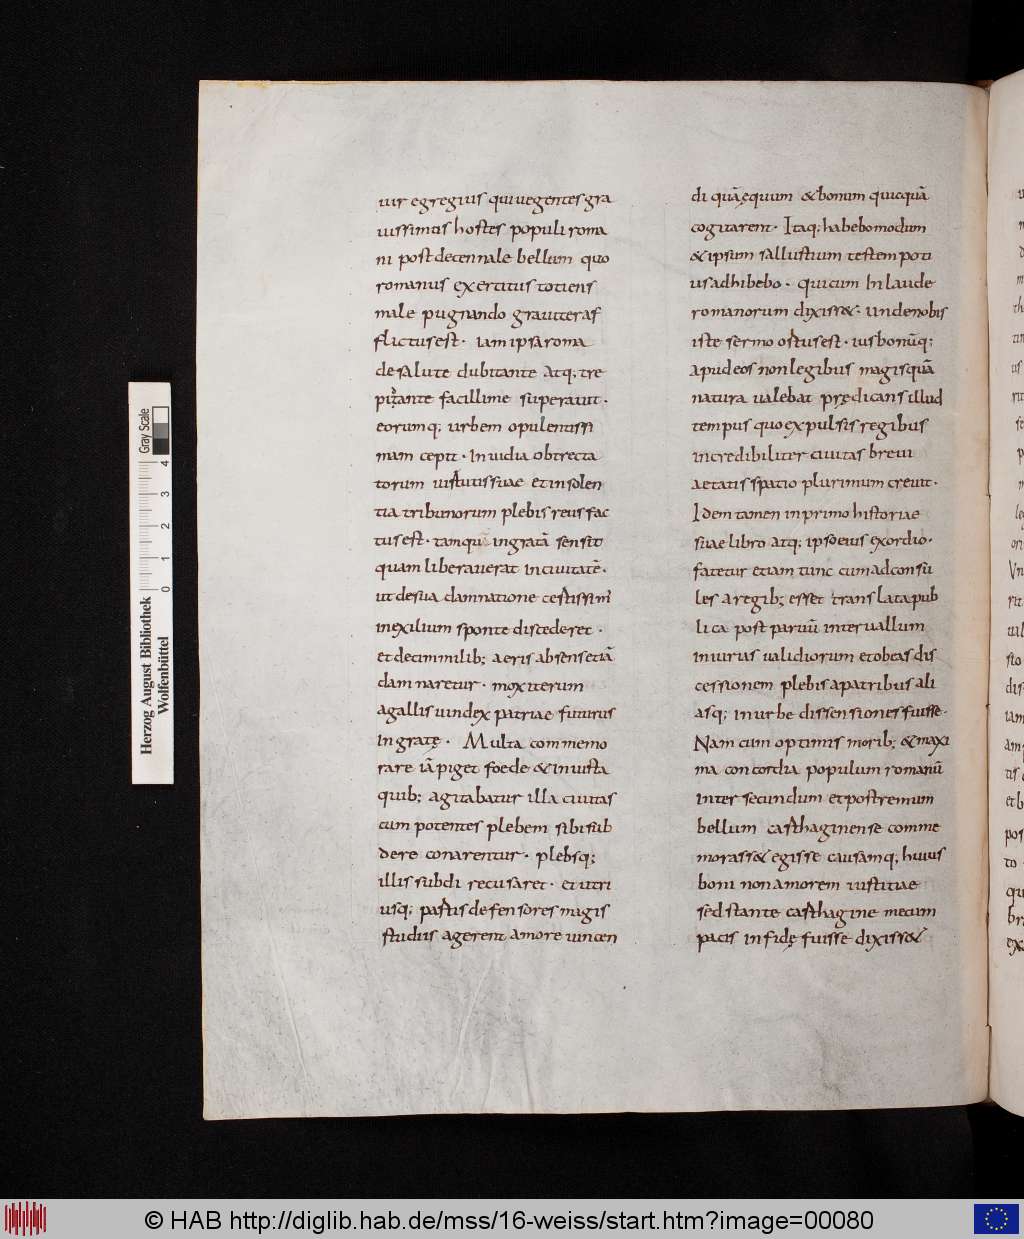 uir egregius qui uegentes gra
uissimus hostes populi roma
ni post decennale bellum quo
romanus exercitus totiens
male pugnando grauiter af
flictus est. iam ipsa roma
de salute dubitante atq; tre
pitante facillime superauit.
eorumq; urbem opulentissi
mam cepit. Inuidia obtrecta
torum uirtutis suae et insolen
tia tribunorum plebis reus fac
tus est. tamqu ingratā sensit
quam liberauerat inciuitatē.
ut de sua damnatione certissim'
in exilium sponte discederet.
et decimmilib; aeris absens etiā
damnaretur. mox iterum
agallis uindex patriae futurus
ingratę. Multa commemo
rare iā piget foede & iniusta
quib; agitabatur illa ciuitas
cum potentes plebem sibi sub
dere conarentur. plebsq;
illis subdi recusaret. et utri
usq; partis defensores magis
studiis agerent amore uincen
di quā ęquum & bonum quicquā
cogitarent. Itaq; habebo modum
& ipsum sallustium testem poti
us adhibebo. qui cum In laude
romanorum dixiss&. unde nobis
iste sermo ortus est. ius bonūq;
apud eos non legibus magis quā
natura ualebat prędicans illud
tempus quo expulsis regibus
incredibiliter ciuitas breui
aetatis spatio plurimum creuit.
Idem tamen in primo historiae
suae libro atq; ipso eius exordio.
fatetur etiam tunc cum ad consū
les a regib; esset translata pub
lica post paruū interuallum
iniurias ualidiorum et ob eas dis
cessionem plebis apatribus ali
asq; in urbe dissensiones fuisse.
Nam cum optimis morib; & maxi
ma concordia populum romanū
inter secundum et postremum
bellum carthaginense comme
morass& egisse causamq; huius
boni non amorem iustitiae
sed stante carthagine metum
pacis infidę fuisse dixiss&
Herzog August Bibliothek
Wolfenbüttel
0 1 2 3 4
Gray Scale
© HAB http://diglib.hab.de/mss/16-weiss/start.htm?image=00080